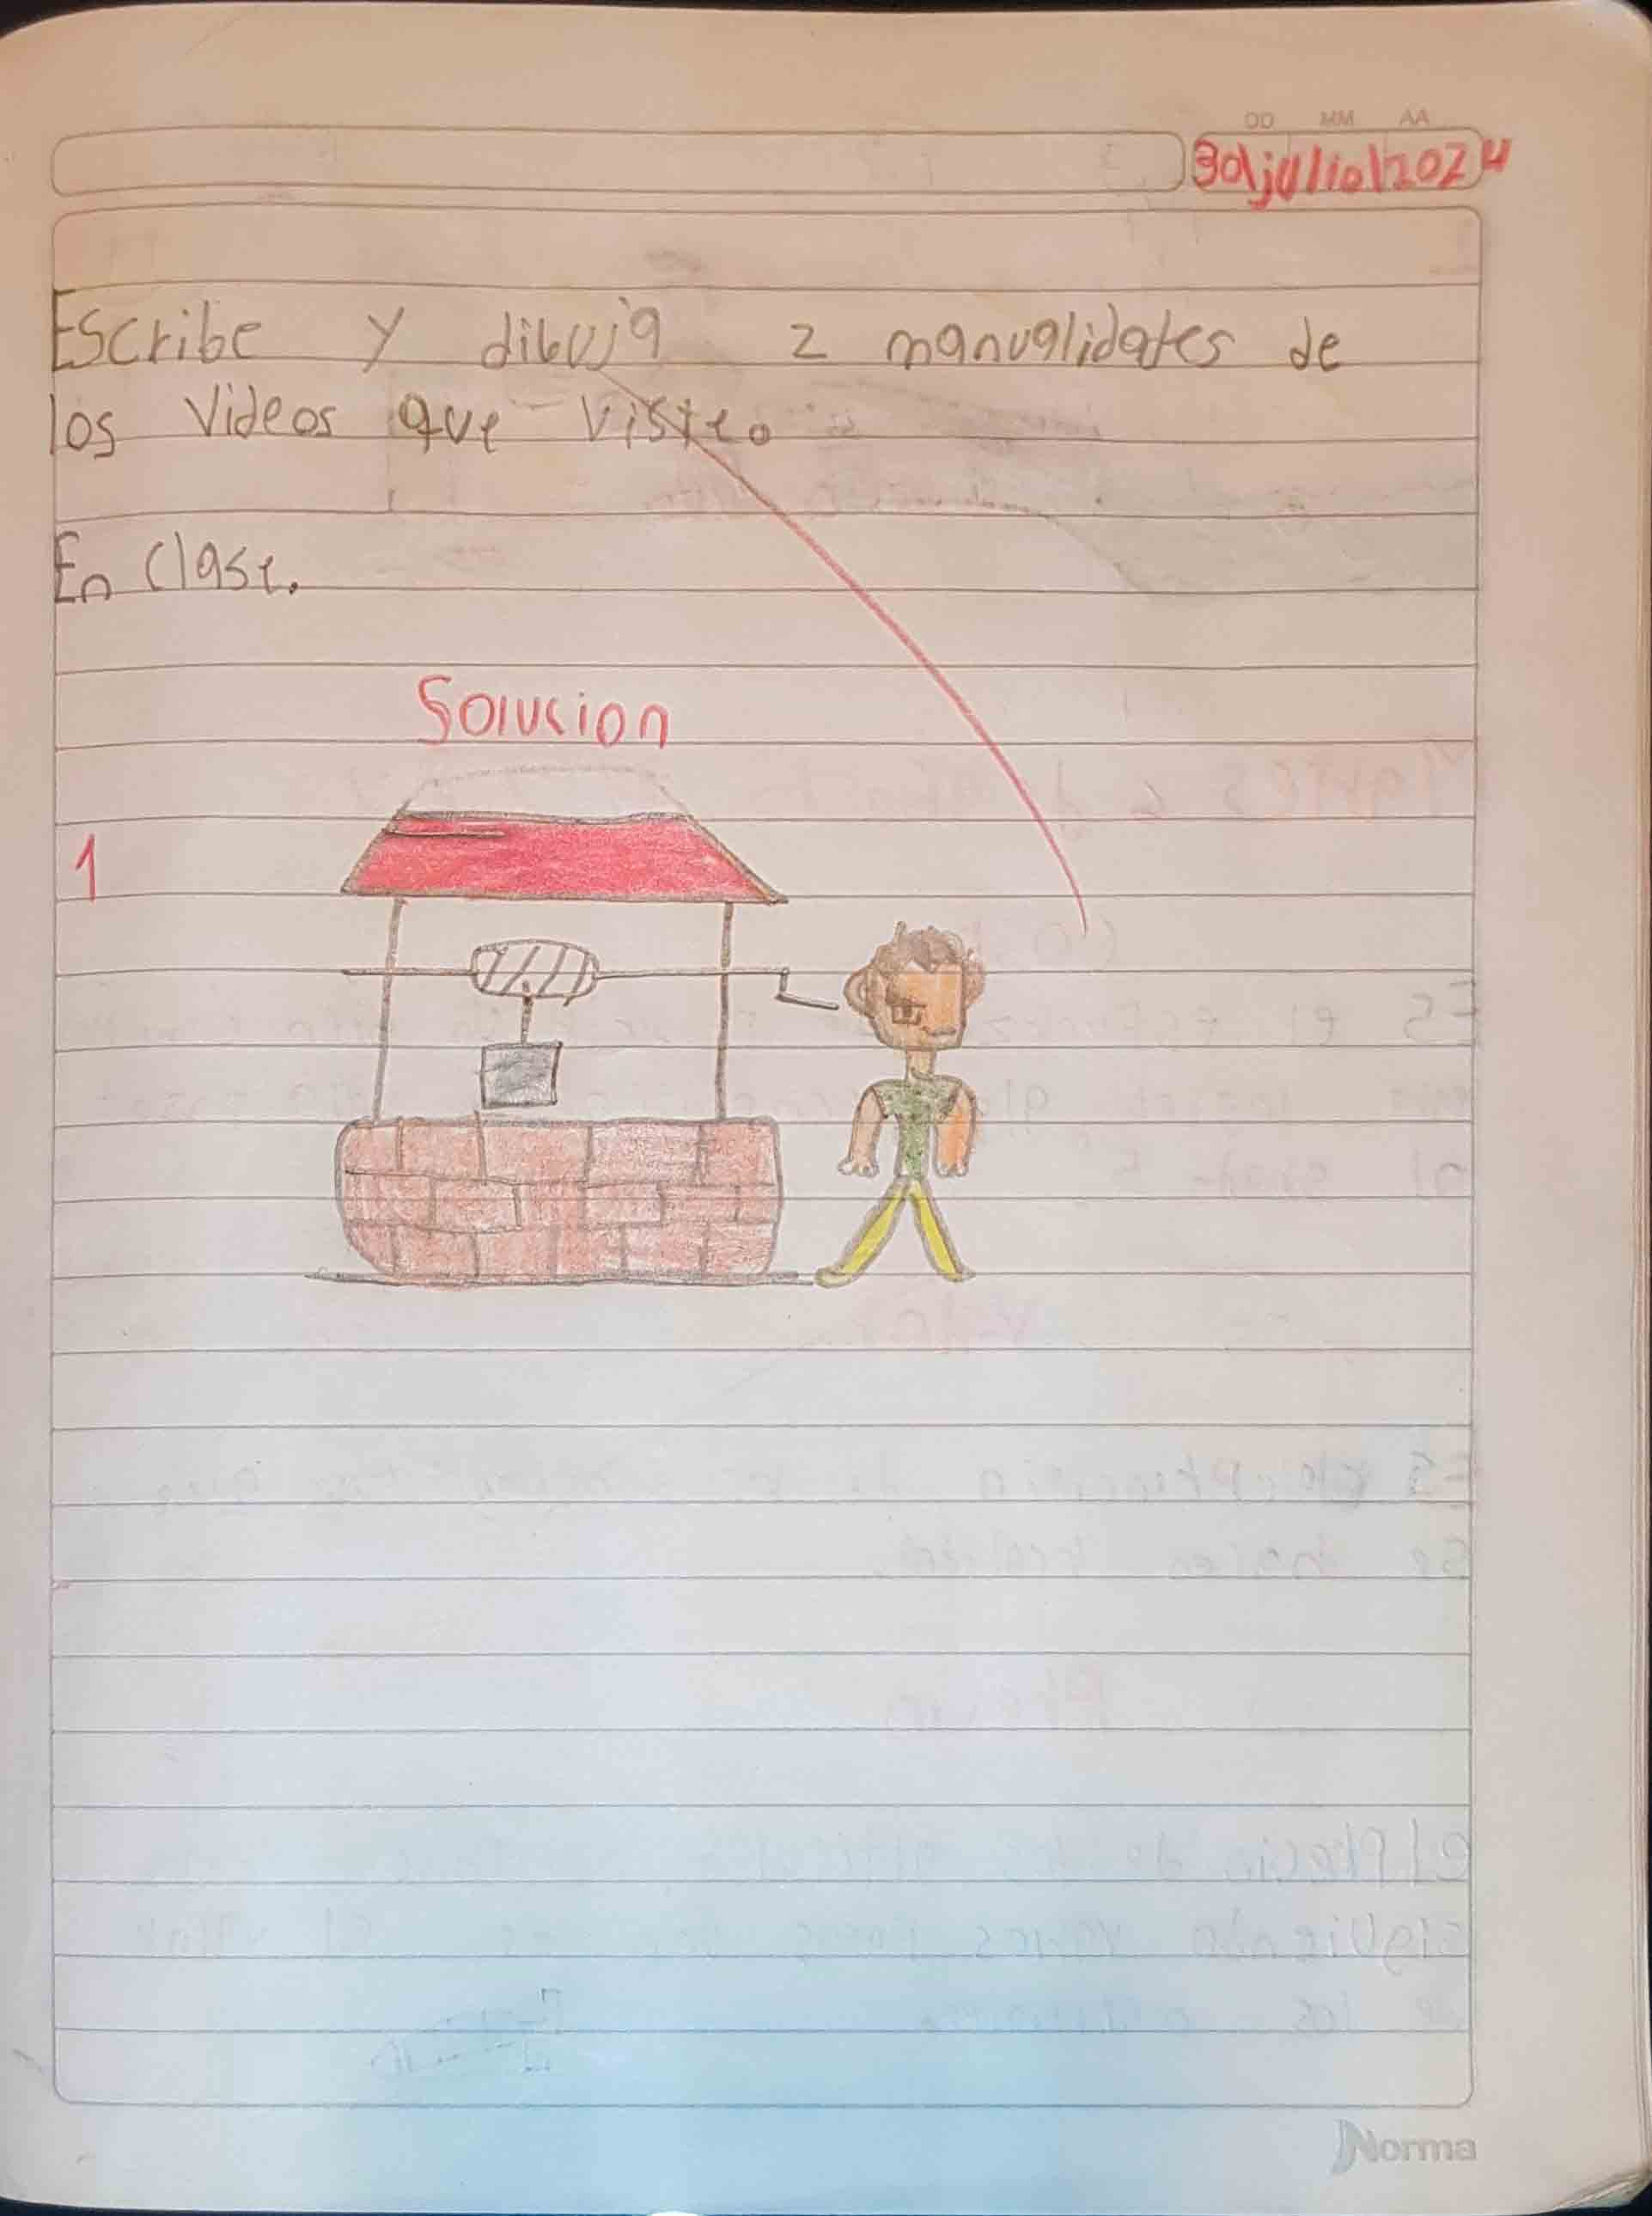 DD MM AA
30\julio\2024
Escribe y dibuja 2 manualidates de
los videos que viste.
En clase.
Solucion
1
Norma